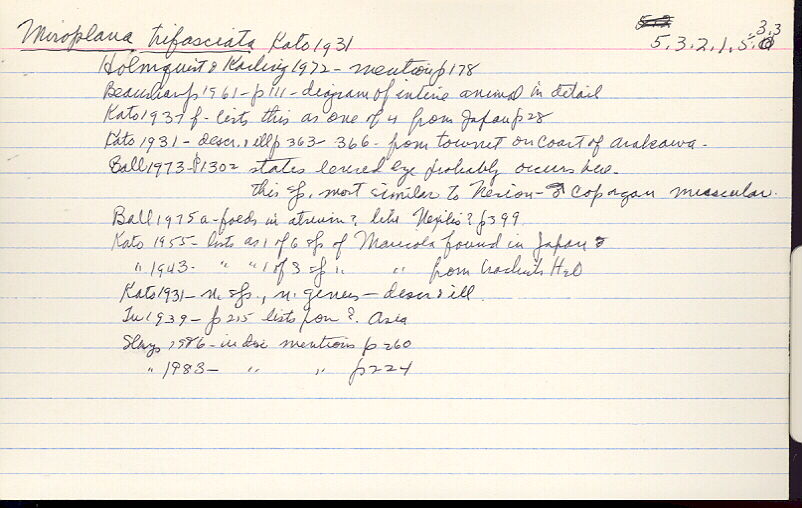 Miroplana trifasciata Kato 1931
5.3.2.1.5.
3.3
Holmquist & Karling 1972 - mention p 178
Beauchamp 1961 - p 111 - diagram of entire animal in detail
Kato 1937 f - lists this as one of 4 from Japan p 28
Kato 1931 - descr. & ill p 363 - 366. from townet on coast of Arakawa -
Ball 1973 - p 1302 states lensed eye probably occurs here.
this sp. most similar to Nexion - cop organ muscular.
Ball 1975 a - foods in atrium? like Nexilis? p 399
Kato 1955 - lists as 1 of 6 sps of Maricola found in Japan
" 1943 - " " 1 of 3 sp " " from brackish H2O
Kato 1931 - n. sp., n. genus - descr & ill
Tu 1939 - p 215 lists from ?. Asia
Sluys 1986 - mentions p 260
" 1983 - " " p 224